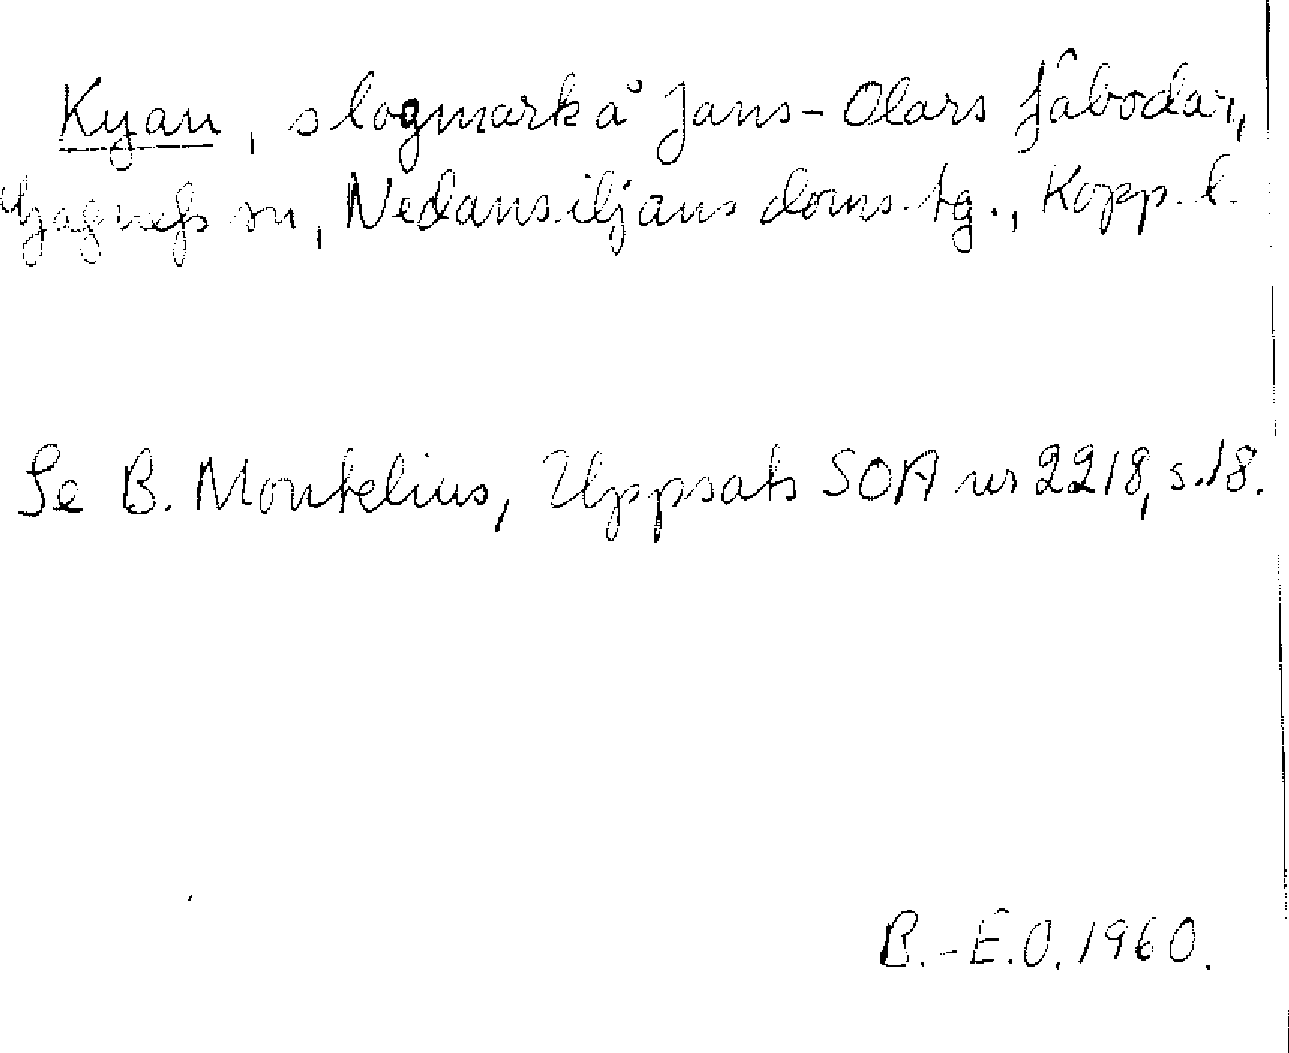 Kyan, slogmark å Jans-Olars fäbodar,
Gagnefs sn, Nedansiljans doms.tg., Kopp. l.
Se B. Montelius, Uppsats SOA nr 2218, s.18.
B.-E.O. 1960.